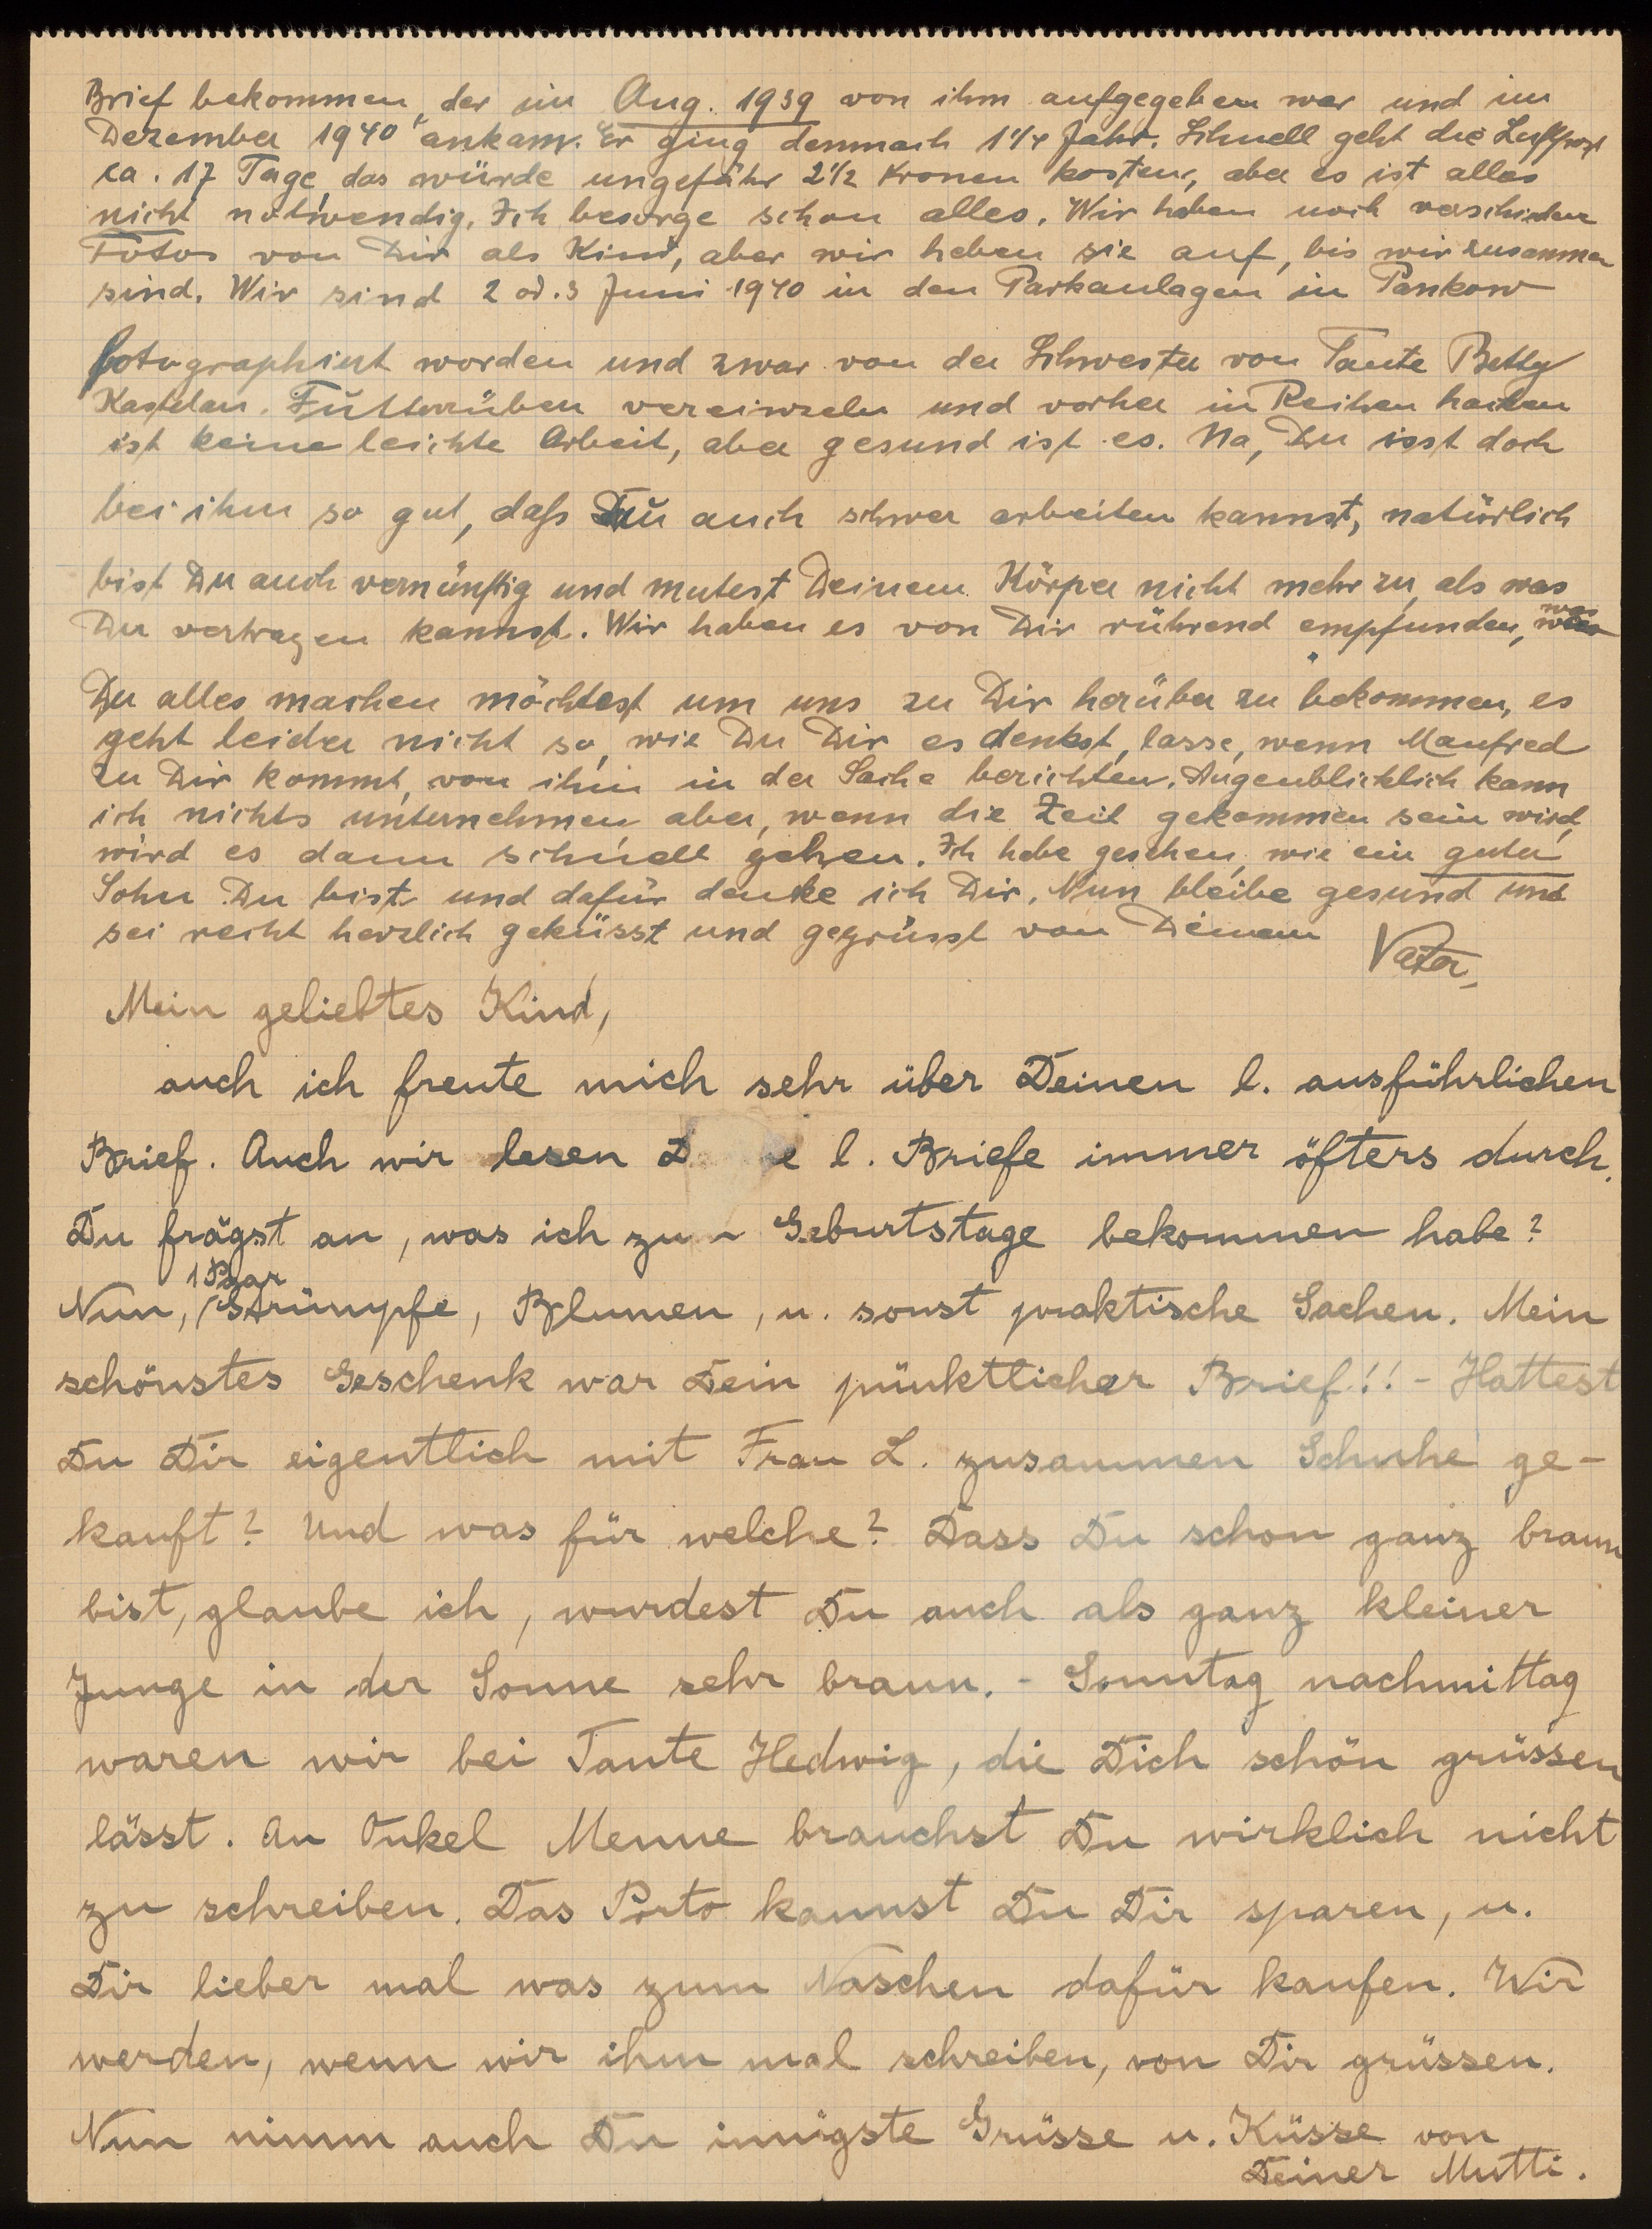 Brief bekommen, der im Aug. 1939 von ihm aufgegeben war und im
Dezember 1940 ankam. Er ging demnach 1 1/4 Jahr. Schnell geht die Luftpost
ca. 17 Tage, das würde ungefähr 2 1/2 Kronen kosten, aber es ist alles
nicht notwendig. Ich besorge schon alles. Wir haben noch verschiedene
Fotos von Dir als Kind, aber wir heben sie auf, bis wir zusammen
sind. Wir sind 2 od. 3 Juni 1940 in den Parkanlagen in Pankow
fotographiert worden und zwar von der Schwester von Tante Betty
Kastelan. Futterrüben vereinzeln und vorher in Reihen hacken
ist keine leichte Arbeit, aber gesund ist es. Na, Du isst doch
bei ihm so gut, daß Du auch schwer arbeiten kannst, natürlich
bist Du auch vernünftig und mutest Deinem Körper nicht mehr zu, als was
Du vertragen kannst. Wir haben es von Dir rührend empfunden, was
Du alles machen möchtest um uns zu Dir herüber zu bekommen, es
geht leider nicht so, wie Du Dir es denkst, lasse, wenn Manfred
zu Dir kommt, von ihm in der Sache berichten. Augenblicklich kann
ich nichts unternehmen aber, wenn die Zeit gekommen sein wird,
wird es dann schnell gehen. Ich habe gesehen, wie ein guter
Sohn Du bist und dafür danke ich Dir. Nun bleibe gesund und
sei recht herzlich geküsst und gegrüsst von Deinem
Vater
Mein geliebtes Kind,
auch ich freute mich sehr über Deinen l. ausführlichen
Brief. Auch wir lesen D e l. Briefe immer öfters durch.
Du frägst an, was ich zum Geburtstage bekommen habe?
Nun, 1 Paar Strümpfe, Blumen, u. sonst praktische Sachen. Mein
schönstes Geschenk war Dein pünktlicher Brief!! - Hattest
Du Dir eigentlich mit Frau L. zusammen Schuhe ge-
kauft? Und was für welche? Dass Du schon ganz braun
bist, glaube ich, wurdest Du auch als ganz kleiner
Junge in der Sonne sehr braun. - Sonntag nachmittag
waren wir bei Tante Hedwig, die Dich schön grüssen
lässt. An Onkel Menne brauchst Du wirklich nicht
zu schreiben. Das Porto kannst Du Dir sparen, u.
Dir lieber mal was zum Naschen dafür kaufen. Wir
werden, wenn wir ihm mal schreiben, von Dir grüssen.
Nun nimm auch Du innigste Grüsse u. Küsse von
Deiner Mutti.